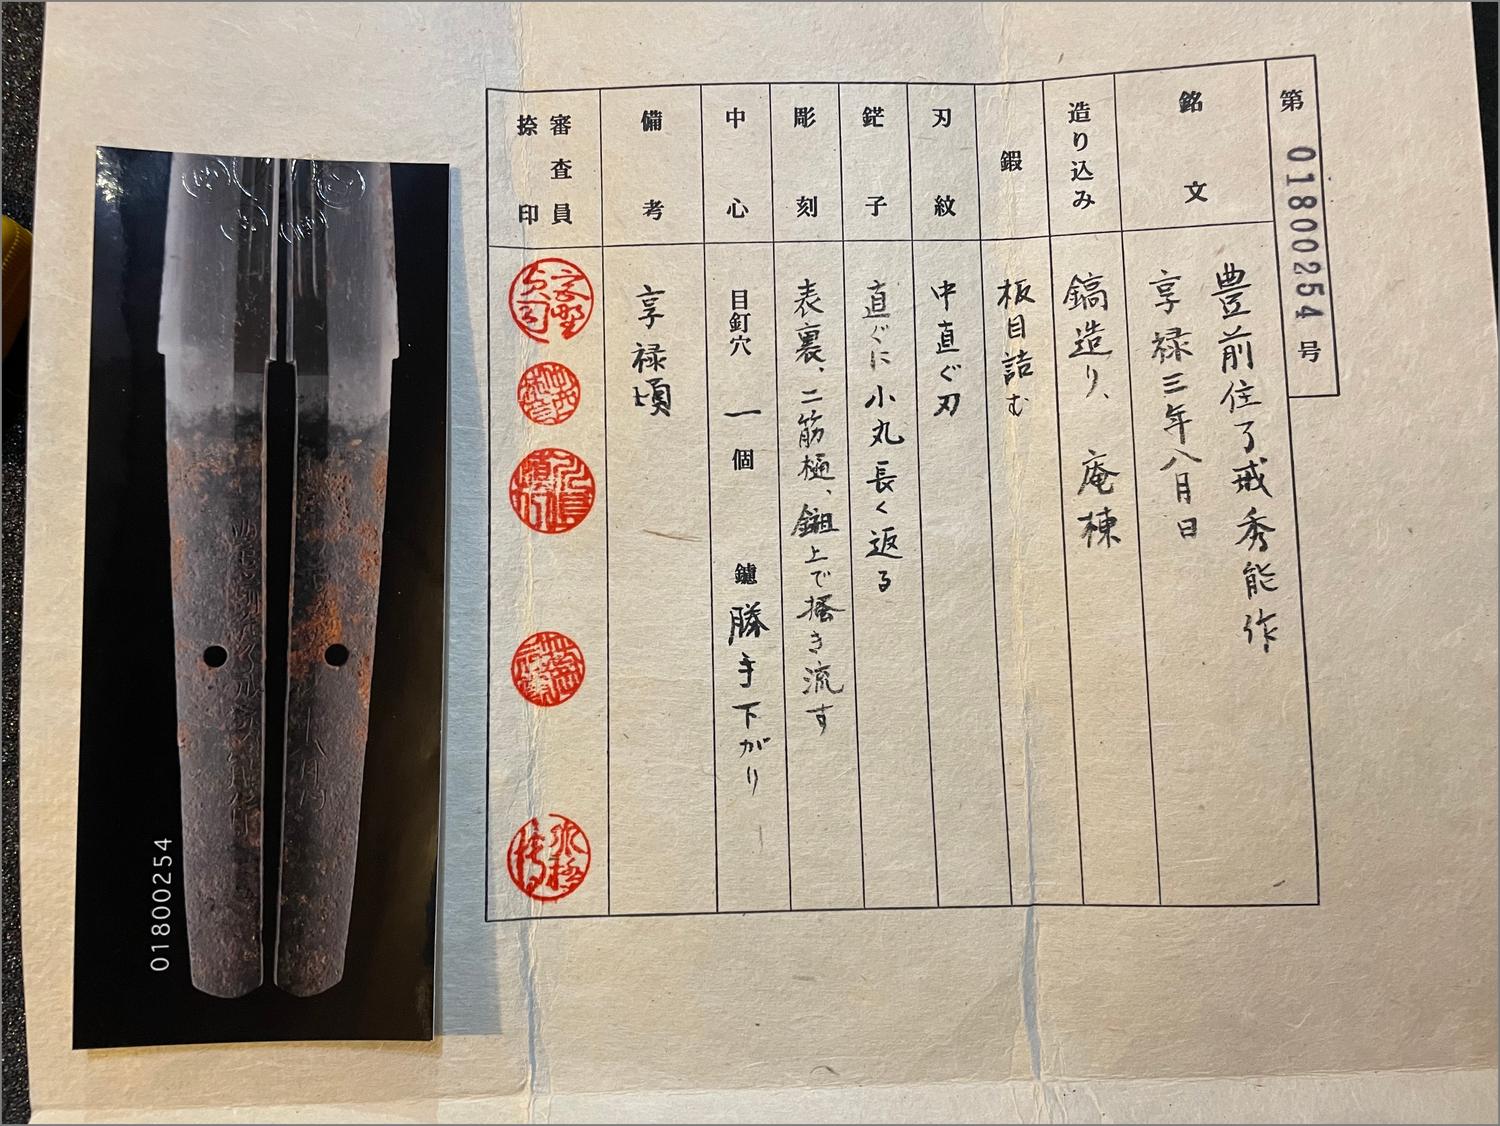 第 01800254 号
銘文
豊前住了戒秀能作
享禄三年八月日
造り込み
鎬造り、庵棟
鍜
板目詰む
刃紋
中直ぐ刃
鋩子
直ぐに小丸長く返る
彫刻
表裏、二筋樋、鎺上で掻き流す
中心
目釘穴 一個 鑢 勝手下がり
備考
享禄頃
審査員
捺印
01800254